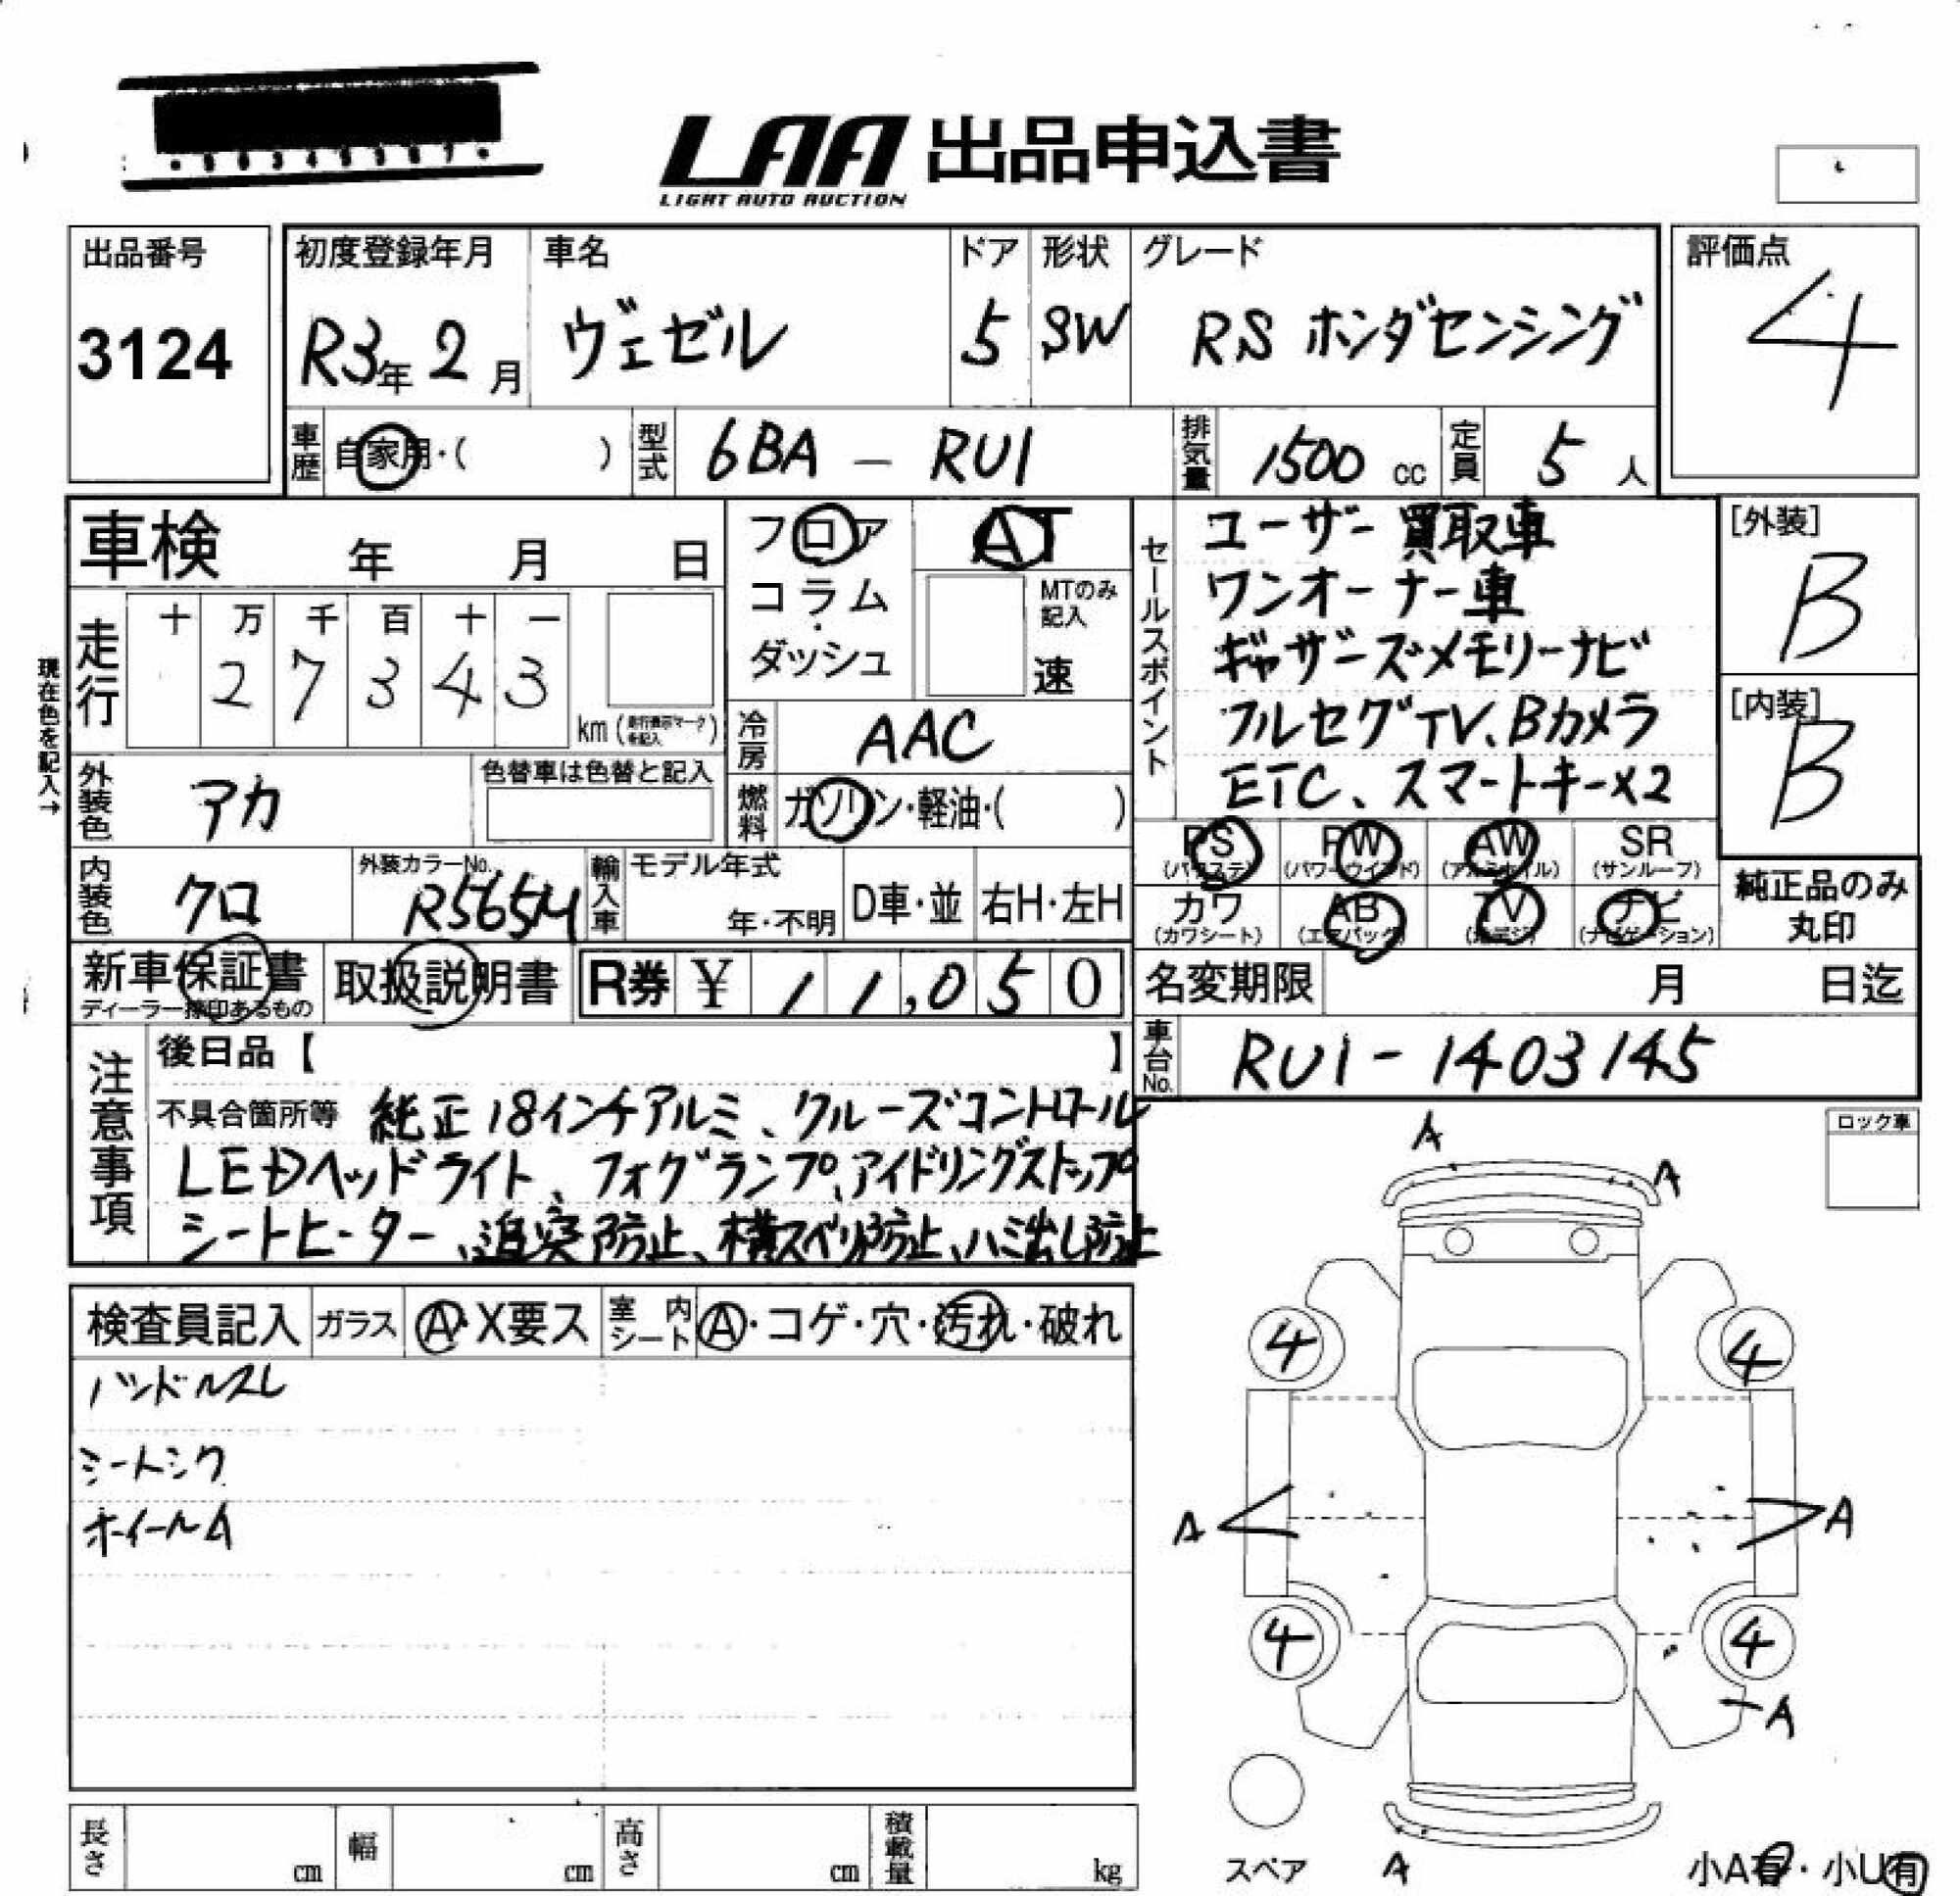 LAA 出品申込書
LIGHT AUTO AUCTION
出品番号 3124
初度登録年月 R3年2月
車名 ヴェゼル
ドア 5
形状 SW
グレード RS ホンダセンシング
評価点 4
車歴 自家用・( )
型式 6BA - RU1
排気量 1500 cc
定員 5 人
車検 年 月 日
フロア
コラム
ダッシュ
AT
MTのみ記入
速
セールスポイント
ユーザー買取車
ワンオーナー車
ギャザーズメモリーナビ
フルセグTV、Bカメラ
ETC、スマートキーx2
[外装] B
[内装] B
現在色を記入→
走行 十 万 千 百 十 一
2 7 3 4 3 km (走行表示マークを記入)
冷房 AAC
外装色 アカ
色替車は色替と記入
燃料 ガソリン・軽油・( )
内装色 クロ
外装カラーNo. R565M
輸入車 モデル年式 年・不明 D車・並 右H・左H
PS (パワステ) PW (パワーウインド) AW (アルミホイル) SR (サンルーフ)
カワ (カワシート) AB (エアバック) TV ナビ (ナビゲーション)
純正品のみ丸印
新車保証書 ディーラー捺印あるもの
取扱説明書
R券 ¥ 11,050
名変期限 月 日迄
車台No. RU1-1403145
注意事項
後日品【 】
不具合箇所等 純正18インチアルミ、クルーズコントロール
LEDヘッドライト、フォグランプ、アイドリングストップ
シートヒーター、追突防止、横スベリ防止、ハミ出し防止
ロック車
検査員記入 ガラス A・X要ス 室内シート A・コゲ・穴・汚れ・破れ
ハンドルスレ
シートシワ
ホイールA
A
A
4 4
A A
4 4
A
スペア
A
小A有・小U有
長さ cm 幅 cm 高さ cm 積載量 kg